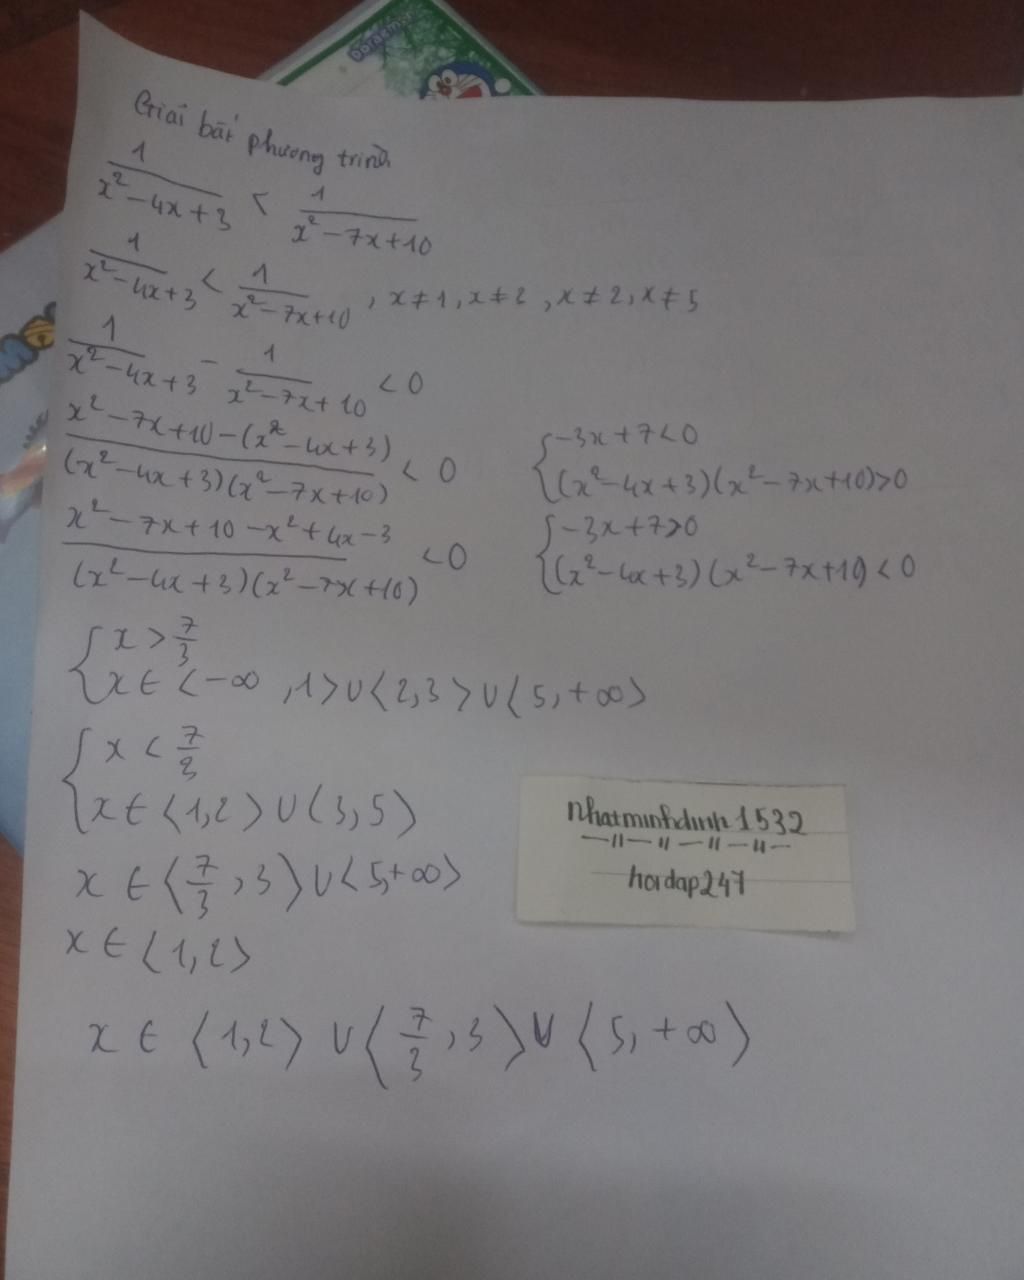 Doraemon
Giải bất phương trình
1/(x² - 4x + 3) < 1/(x² - 7x + 10)
1/(x² - 4x + 3) < 1/(x² - 7x + 10) , x ≠ 1, x ≠ 2, x ≠ 2, x ≠ 5
1/(x² - 4x + 3) - 1/(x² - 7x + 10) < 0
(x² - 7x + 10 - (x² - 4x + 3))/((x² - 4x + 3)(x² - 7x + 10)) < 0
(x² - 7x + 10 - x² + 4x - 3)/((x² - 4x + 3)(x² - 7x + 10)) < 0
{ -3x + 7 < 0
(x² - 4x + 3)(x² - 7x + 10) > 0
{ -3x + 7 > 0
(x² - 4x + 3)(x² - 7x + 10) < 0
{ x > 7/3
x ∈ ⟨-∞, 1⟩ ∪ ⟨2, 3⟩ ∪ ⟨5, +∞⟩
{ x < 7/3
x ∈ ⟨1, 2⟩ ∪ ⟨3, 5⟩
x ∈ ⟨7/3, 3⟩ ∪ ⟨5, +∞⟩
x ∈ ⟨1, 2⟩
x ∈ ⟨1, 2⟩ ∪ ⟨7/3, 3⟩ ∪ ⟨5, +∞⟩
nhatminhdinh1532
hoidap247